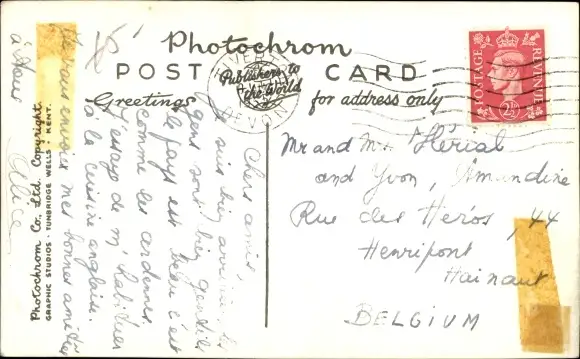 Photochrom
POST CARD
Publishers to
the World
Greetings
for address only
POSTAGE
REVENUE
2½D
DEVON
Chers amis,
Je suis bien arrivée. Les
gens sont bien gentils
le pays est beau c'est
comme les ardennes.
J'essaye de m'habituer
à la cuisine anglaise.
Je vous envoie mes bonnes amitiés
à tous
Alice
Photochrom Co. Ltd. Copyright.
GRAPHIC STUDIOS · TUNBRIDGE WELLS · KENT.
Mr and Mrs Hérial
and Yvon, Amandine
Rue des Héros, 44
Henripont
Hainaut
BELGIUM